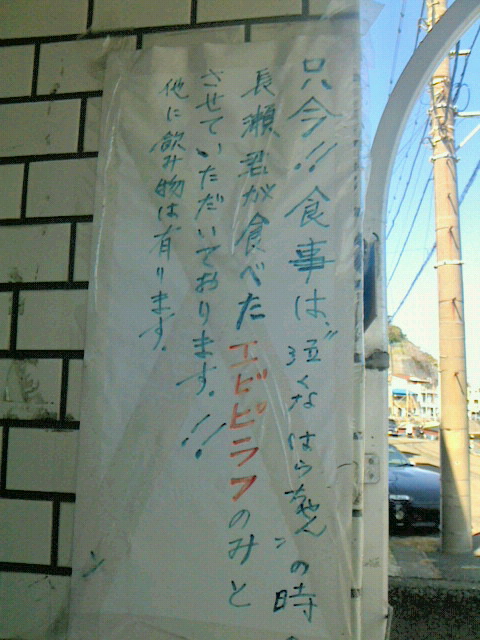 只今!!食事は"泣くな はらちゃん"の時
長瀬君が食べたエビピラフのみと
させていただいております。!!
他に飲み物は有ります。